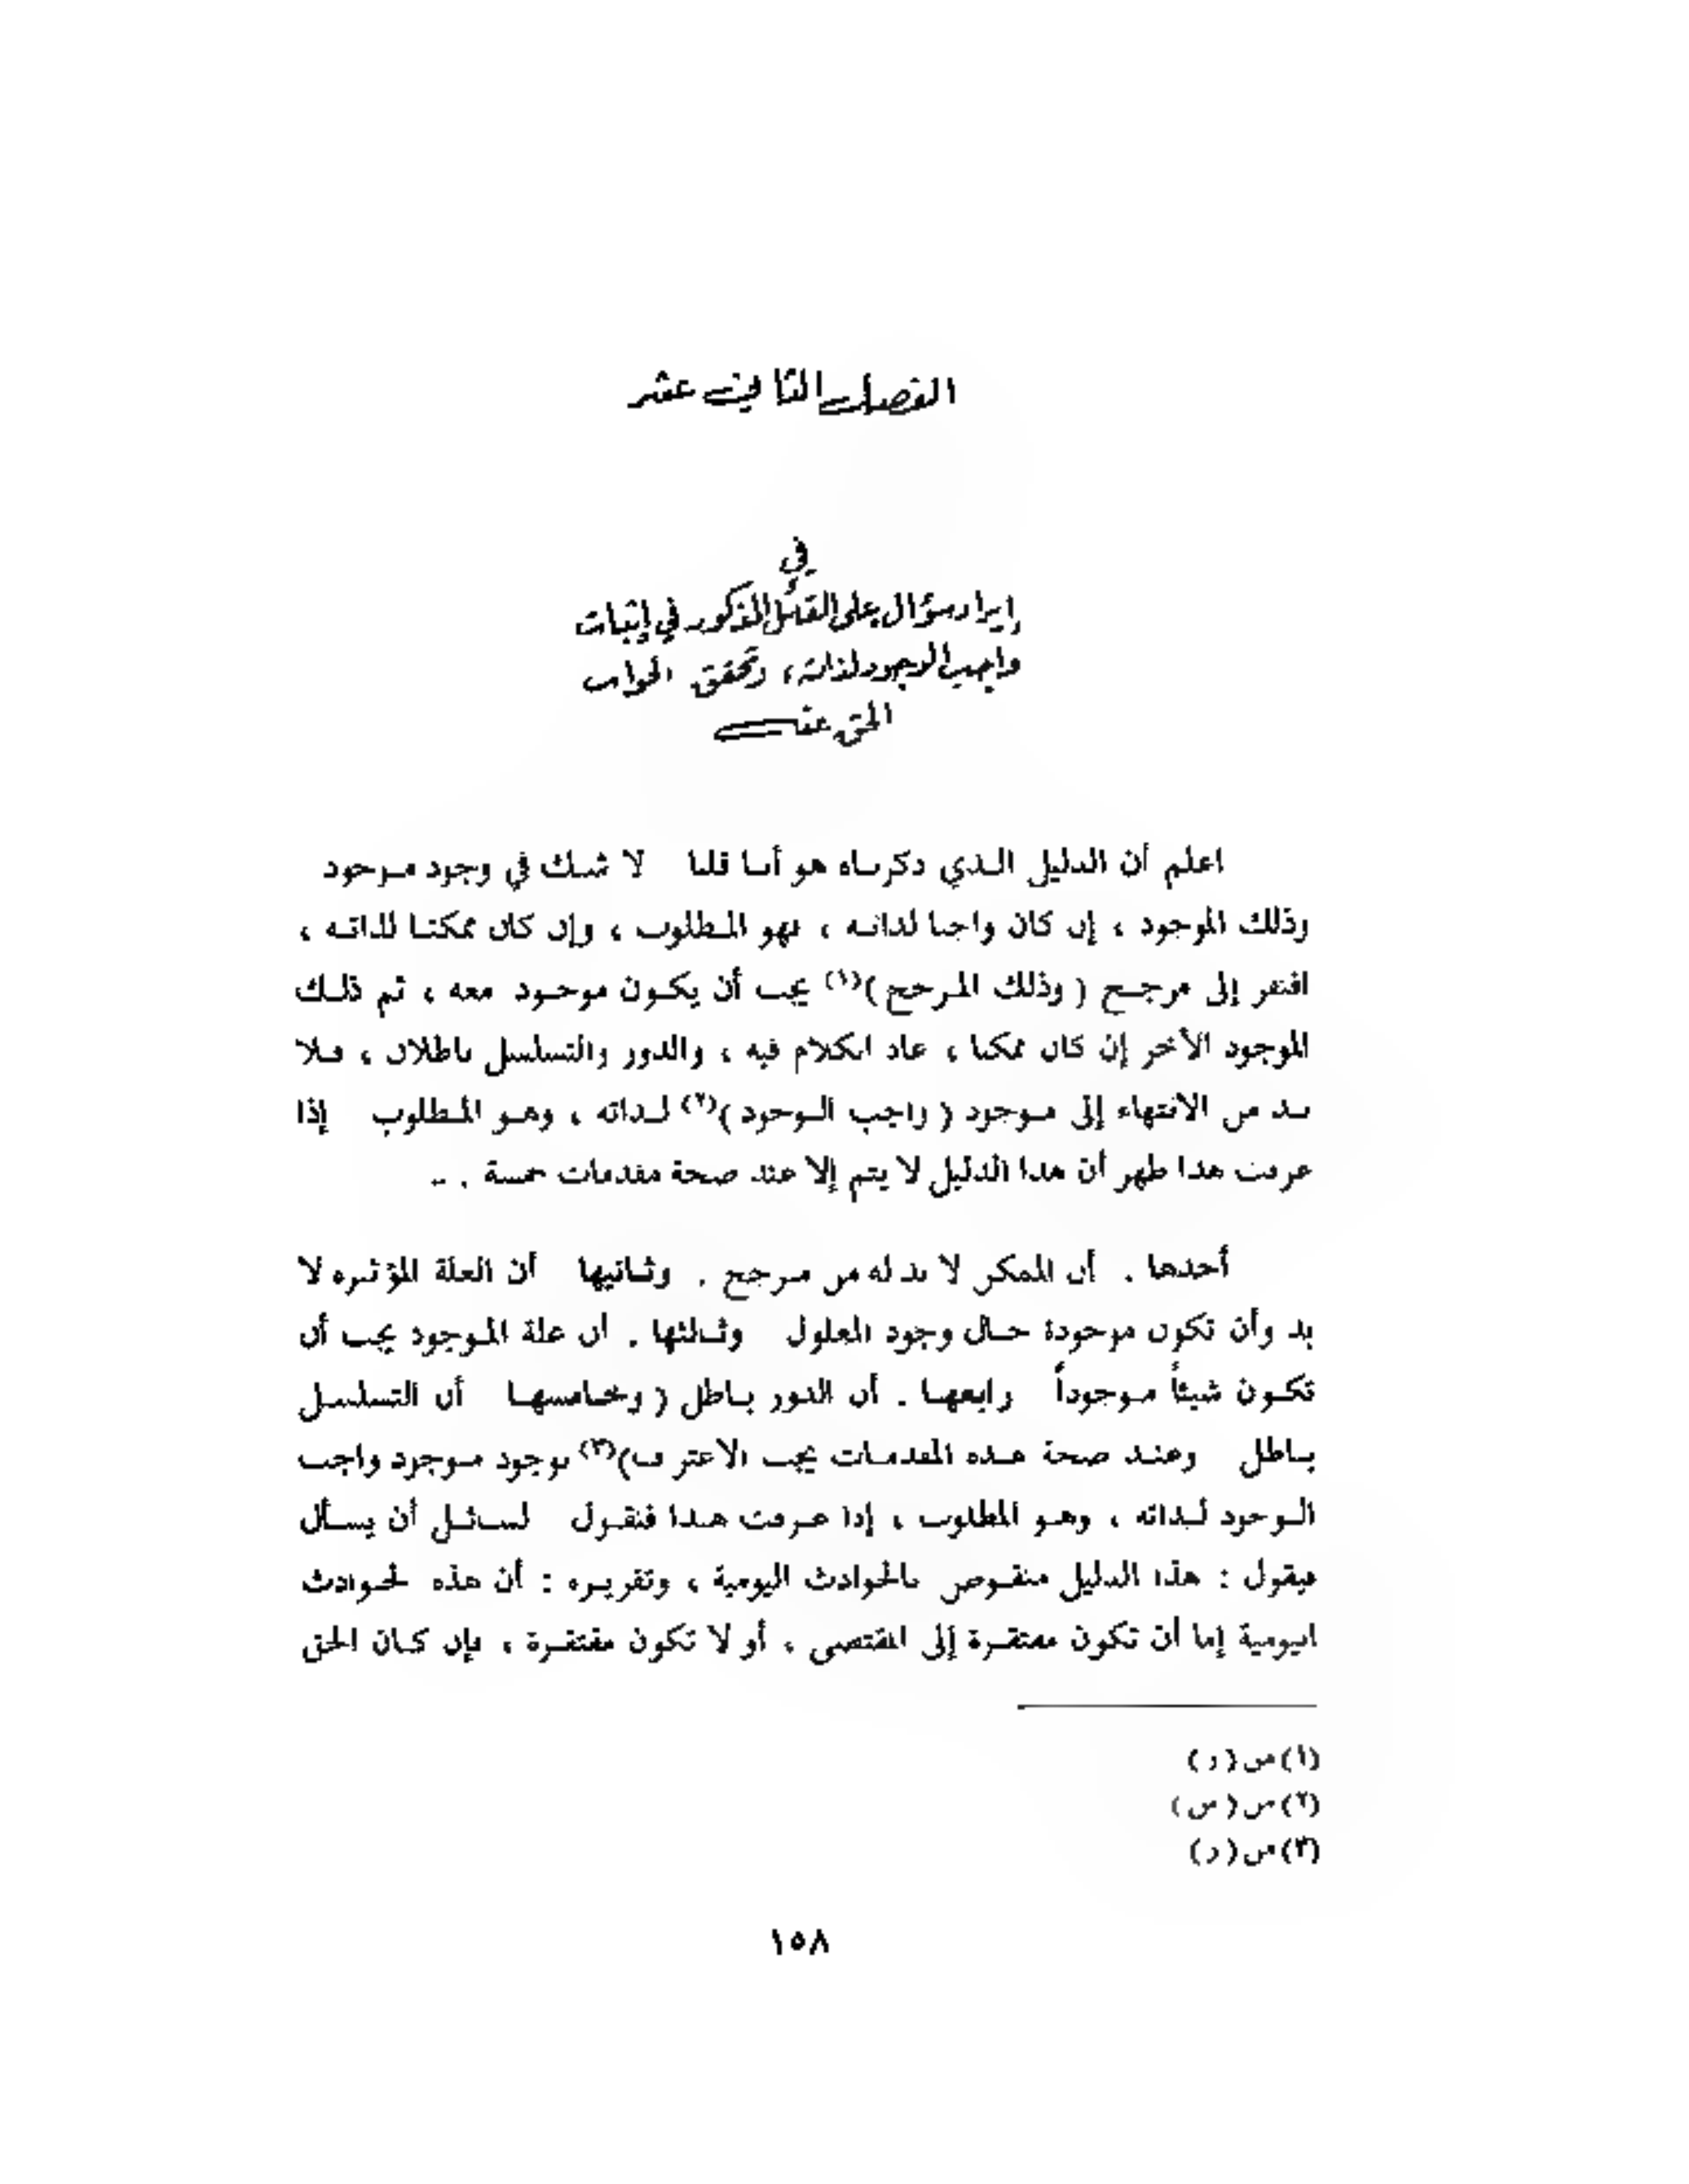 الفصل الثاني عشر
في
إيراد سؤال على القائل المذكور في إثبات
واجب الوجود لذاته ، وتحقق الجواب
الحق عنـــه
اعلم أن الدليل الذي ذكرناه هو أننا قلنا لا شك في وجود موجود
وذلك الموجود ، إن كان واجبا لذاته ، فهو المطلوب ، وإن كان ممكنا لذاته ،
افتقر إلى مرجح ( وذلك المرجح )(١) يجب أن يكون موجود معه ، ثم ذلك
الموجود الآخر إن كان ممكنا ، عاد الكلام فيه ، والدور والتسلسل باطلان ، فلا
بد من الانتهاء إلى موجود ( واجب الوجود )(٢) لذاته ، وهو المطلوب إذا
عرفت هذا ظهر أن هذا الدليل لا يتم إلا عند صحة مقدمات خمسة . ..
أحدها . أن الممكن لا بد له من مرجح . وثانيها أن العلة المؤثره لا
بد وأن تكون موجودة حال وجود المعلول وثالثها . أن علة الموجود يجب أن
تكون شيئاً موجوداً رابعها . أن الدور باطل ( وخامسها أن التسلسل
باطل وعند صحة هذه المقدمات يجب الاعتراف )(٣) بوجود موجود واجب
الوجود لذاته ، وهو المطلوب ، إذا عرفت هذا فنقول لسائل أن يسأل
فيقول : هذا الدليل منقوض بالحوادث اليومية ، وتقريره : أن هذه الحوادث
اليومية إما أن تكون مفتقرة إلى المقتضى ، أو لا تكون مفتقرة ، فإن كان الحق
(١) من ( ز )
(٢) من ( س )
(٣) من ( ز )
١٥٨